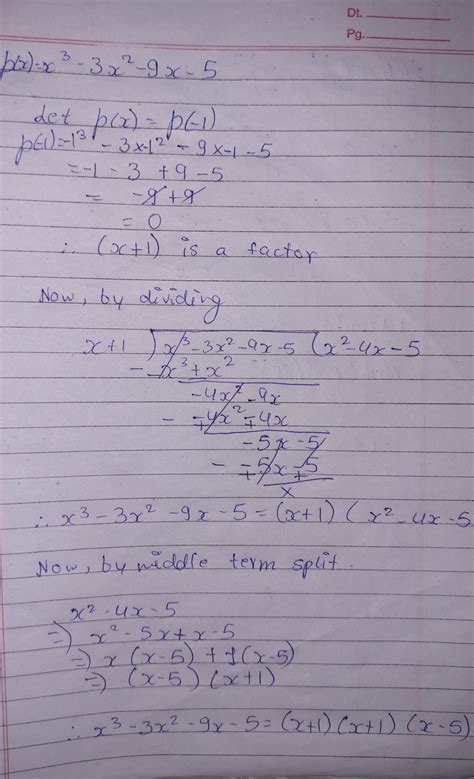 Dt.
Pg.
p(x)=x³-3x²-9x-5
Let p(x) = p(-1)
p(-1)=-1³ - 3x-1² - 9x-1-5
= -1 - 3 + 9 - 5
= -9 + 9
= 0
∴ (x+1) is a factor
Now, by dividing
x+1 ) x³-3x²-9x-5 ( x²-4x-5
- x³+x²
-4x²-9x
- -4x²-4x
-5x-5
- -5x-5
x
∴ x³-3x²-9x-5=(x+1)(x²-4x-5
Now, by middle term split.
x²-4x-5
⇒ x²-5x+x-5
⇒ x(x-5)+1(x-5)
⇒ (x-5)(x+1)
∴ x³-3x²-9x-5=(x+1)(x+1)(x-5)